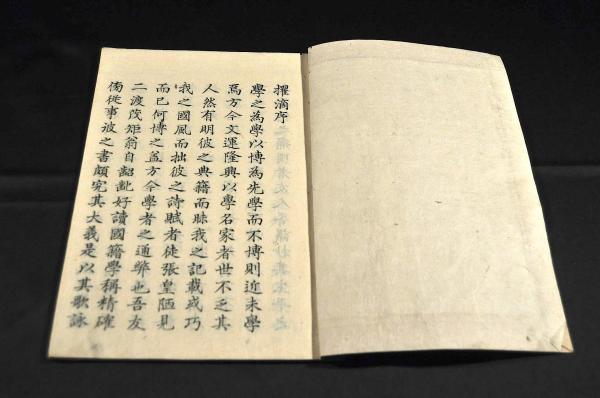 擢滴序
學之為學以博為先學而不博則近未學
焉方今文運隆興以學名家者世不乏其
人然有明彼之典籍而昧我之記載或巧
我之國風而拙彼之詩賦者徒張皇陋見
而已何博之盖方今學者之通弊也吾友
二渡茂矩翁自齠齔好讀國籍學稱精確
傍從事彼之書頗究其大義是以其歌詠